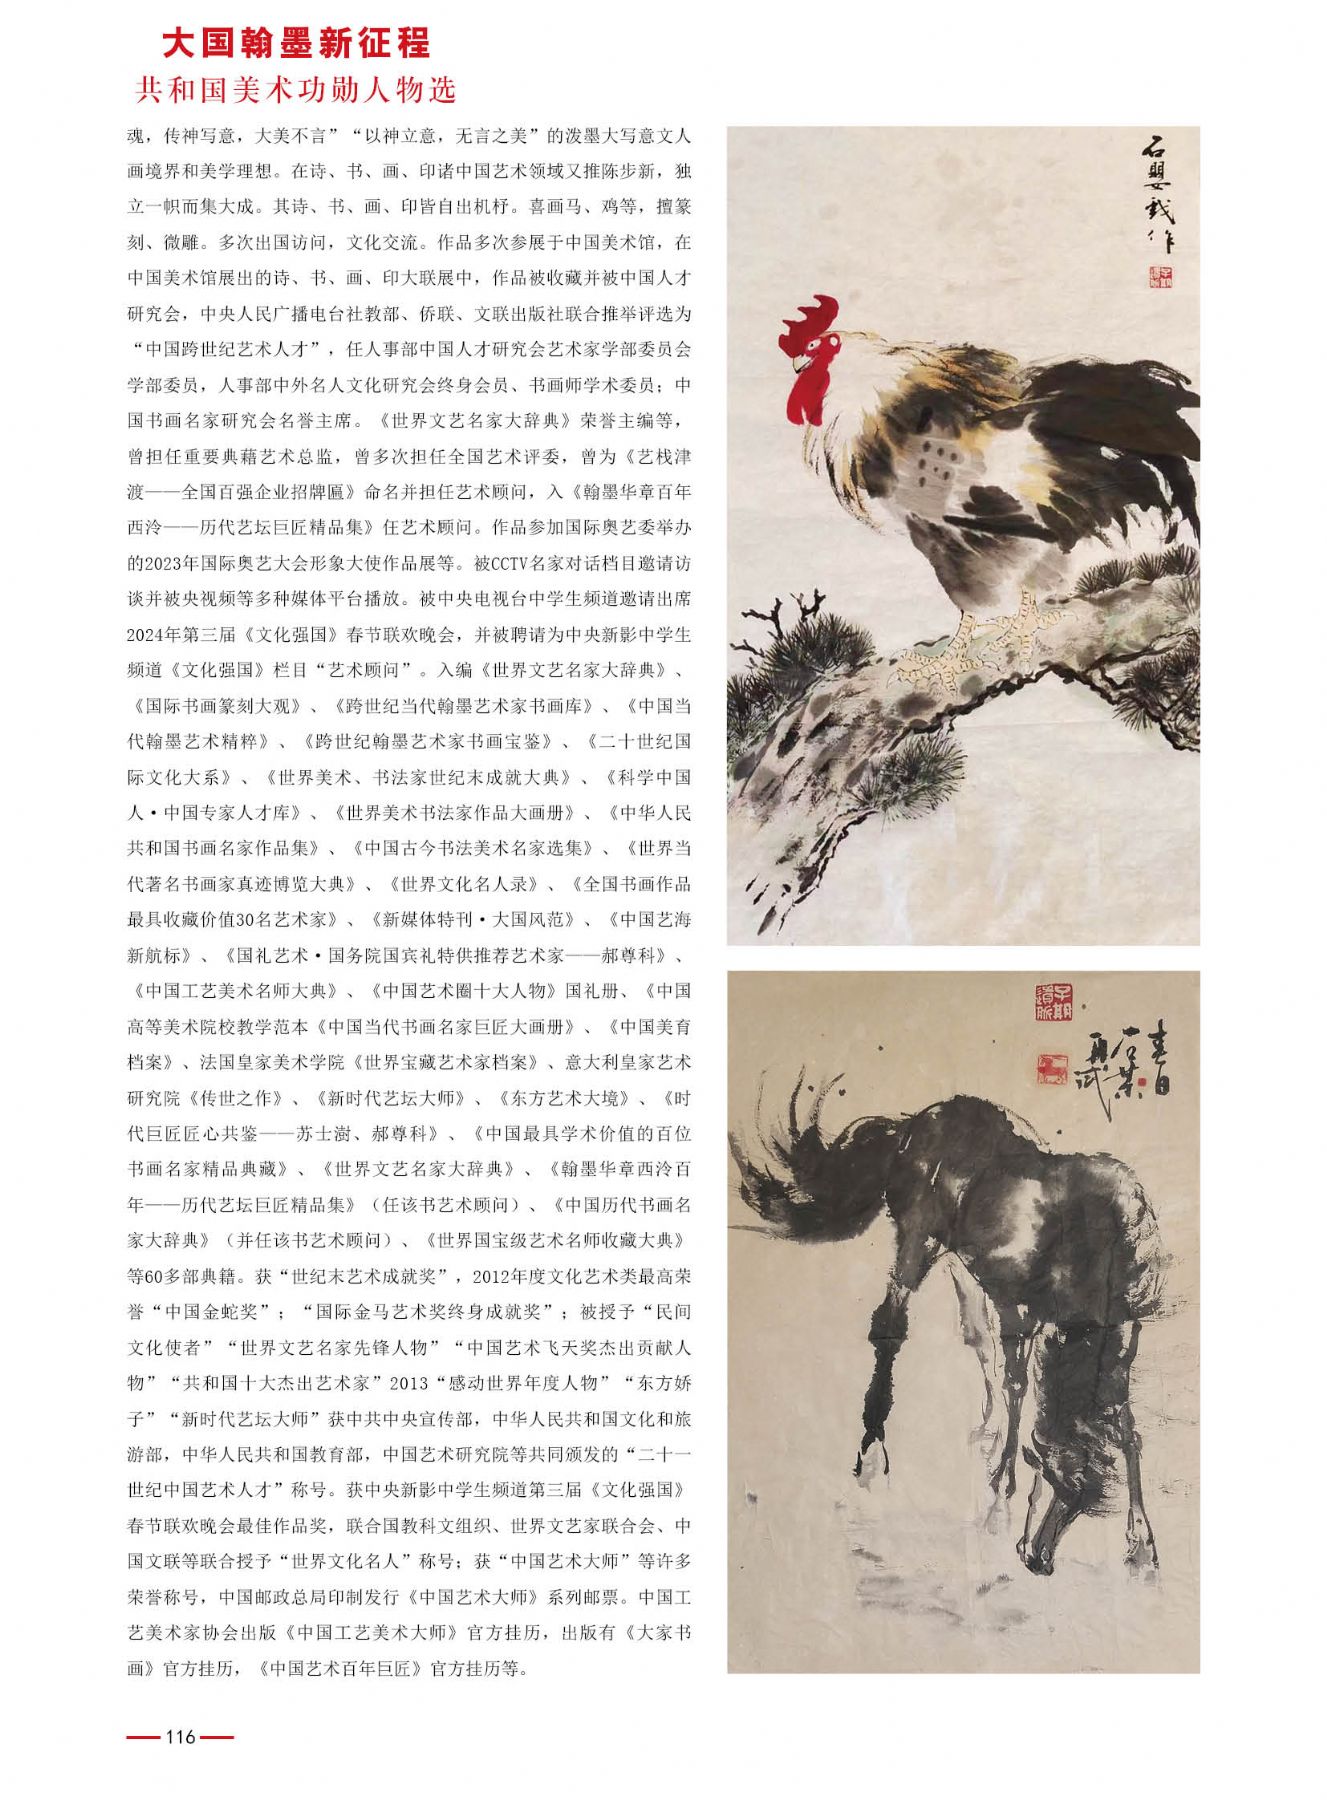 大国翰墨新征程
共和国美术功勋人物选
魂，传神写意，大美不言”“以神立意，无言之美”的泼墨大写意文人
画境界和美学理想。在诗、书、画、印诸中国艺术领域又推陈步新，独
立一帜而集大成。其诗、书、画、印皆自出机杼。喜画马、鸡等，擅篆
刻、微雕。多次出国访问，文化交流。作品多次参展于中国美术馆，在
中国美术馆展出的诗、书、画、印大联展中，作品被收藏并被中国人才
研究会，中央人民广播电台社教部、侨联、文联出版社联合推举评选为
“中国跨世纪艺术人才”，任人事部中国人才研究会艺术家学部委员会
学部委员，人事部中外名人文化研究会终身会员、书画师学术委员；中
国书画名家研究会名誉主席。《世界文艺名家大辞典》荣誉主编等，
曾担任重要典藉艺术总监，曾多次担任全国艺术评委，曾为《艺栈津
渡——全国百强企业招牌匾》命名并担任艺术顾问，入《翰墨华章百年
西泠——历代艺坛巨匠精品集》任艺术顾问。作品参加国际奥艺委举办
的2023年国际奥艺大会形象大使作品展等。被CCTV名家对话档目邀请访
谈并被央视频等多种媒体平台播放。被中央电视台中学生频道邀请出席
2024年第三届《文化强国》春节联欢晚会，并被聘请为中央新影中学生
频道《文化强国》栏目“艺术顾问”。入编《世界文艺名家大辞典》、
《国际书画篆刻大观》、《跨世纪当代翰墨艺术家书画库》、《中国当
代翰墨艺术精粹》、《跨世纪翰墨艺术家书画宝鉴》、《二十世纪国
际文化大系》、《世界美术、书法家世纪末成就大典》、《科学中国
人·中国专家人才库》、《世界美术书法家作品大画册》、《中华人民
共和国书画名家作品集》、《中国古今书法美术名家选集》、《世界当
代著名书画家真迹博览大典》、《世界文化名人录》、《全国书画作品
最具收藏价值30名艺术家》、《新媒体特刊·大国风范》、《中国艺海
新航标》、《国礼艺术·国务院国宾礼特供推荐艺术家——郝尊科》、
《中国工艺美术名师大典》、《中国艺术圈十大人物》国礼册、《中国
高等美术院校教学范本《中国当代书画名家巨匠大画册》、《中国美育
档案》、法国皇家美术学院《世界宝藏艺术家档案》、意大利皇家艺术
研究院《传世之作》、《新时代艺坛大师》、《东方艺术大境》、《时
代巨匠匠心共鉴——苏士澍、郝尊科》、《中国最具学术价值的百位
书画名家精品典藏》、《世界文艺名家大辞典》、《翰墨华章西泠百
年——历代艺坛巨匠精品集》（任该书艺术顾问）、《中国历代书画名
家大辞典》（并任该书艺术顾问）、《世界国宝级艺术名师收藏大典》
等60多部典籍。获“世纪末艺术成就奖”，2012年度文化艺术类最高荣
誉“中国金蛇奖”；“国际金马艺术奖终身成就奖”；被授予“民间
文化使者”“世界文艺名家先锋人物”“中国艺术飞天奖杰出贡献人
物”“共和国十大杰出艺术家”2013“感动世界年度人物”“东方娇
子”“新时代艺坛大师”获中共中央宣传部，中华人民共和国文化和旅
游部，中华人民共和国教育部，中国艺术研究院等共同颁发的“二十一
世纪中国艺术人才”称号。获中央新影中学生频道第三届《文化强国》
春节联欢晚会最佳作品奖，联合国教科文组织、世界文艺家联合会、中
国文联等联合授予“世界文化名人”称号；获“中国艺术大师”等许多
荣誉称号，中国邮政总局印制发行《中国艺术大师》系列邮票。中国工
艺美术家协会出版《中国工艺美术大师》官方挂历，出版有《大家书
画》官方挂历，《中国艺术百年巨匠》官方挂历等。
116
春日